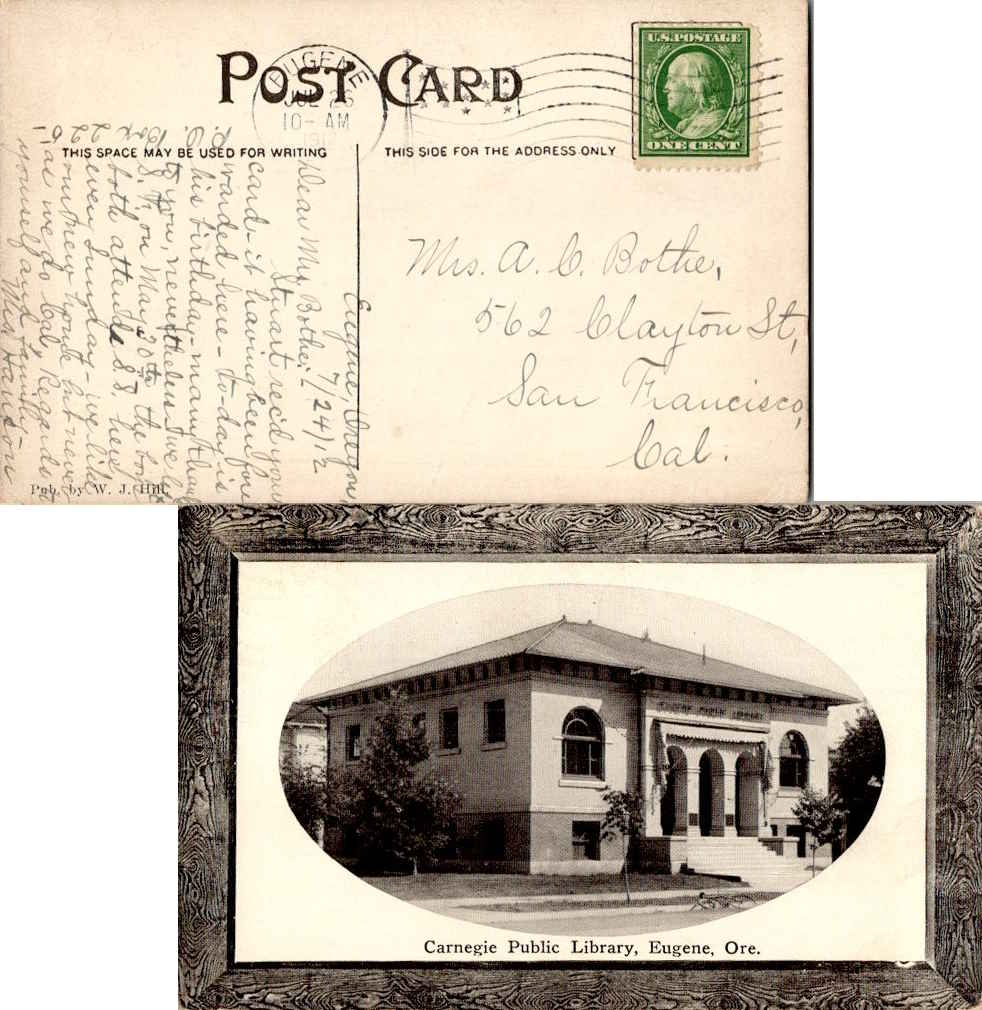 POST CARD
EUGENE
JUL 25
10-AM
U.S. POSTAGE
ONE CENT
THIS SPACE MAY BE USED FOR WRITING
THIS SIDE FOR THE ADDRESS ONLY
Mrs. A. C. Bothe,
562 Clayton St,
San Francisco,
Cal.
Eugene, Oregon
7/24/12
Dear Mrs. Bothe:
Stuart rec'd your
card - it having been for
warded here - to-day is
his birthday - many than
to you, nevertheless I we
S. F. on May 30th the
both attend S.S. here
every Sunday - we like
our new home but
as we do Cal, Regards
yourself and family -
Mrs Hanson
P.O. Box 22
Pub. by W. J. Hill.
EUGENE PUBLIC LIBRARY
Carnegie Public Library, Eugene, Ore.